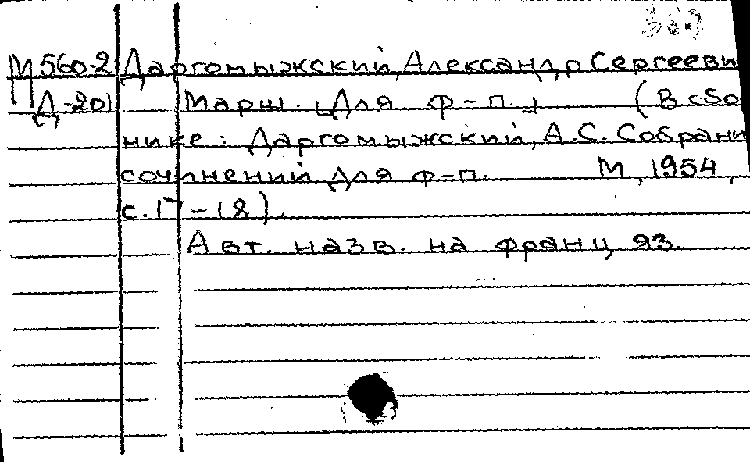 М560-2 Даргомыжский, Александр Сергееви
Д-201 Марш. [Для ф-п.] (В сбо
нике: Даргомыжский, А.С. Собрани
сочинений для ф-п. М, 1954,
с. 17-18).
Авт. назв. на франц яз.